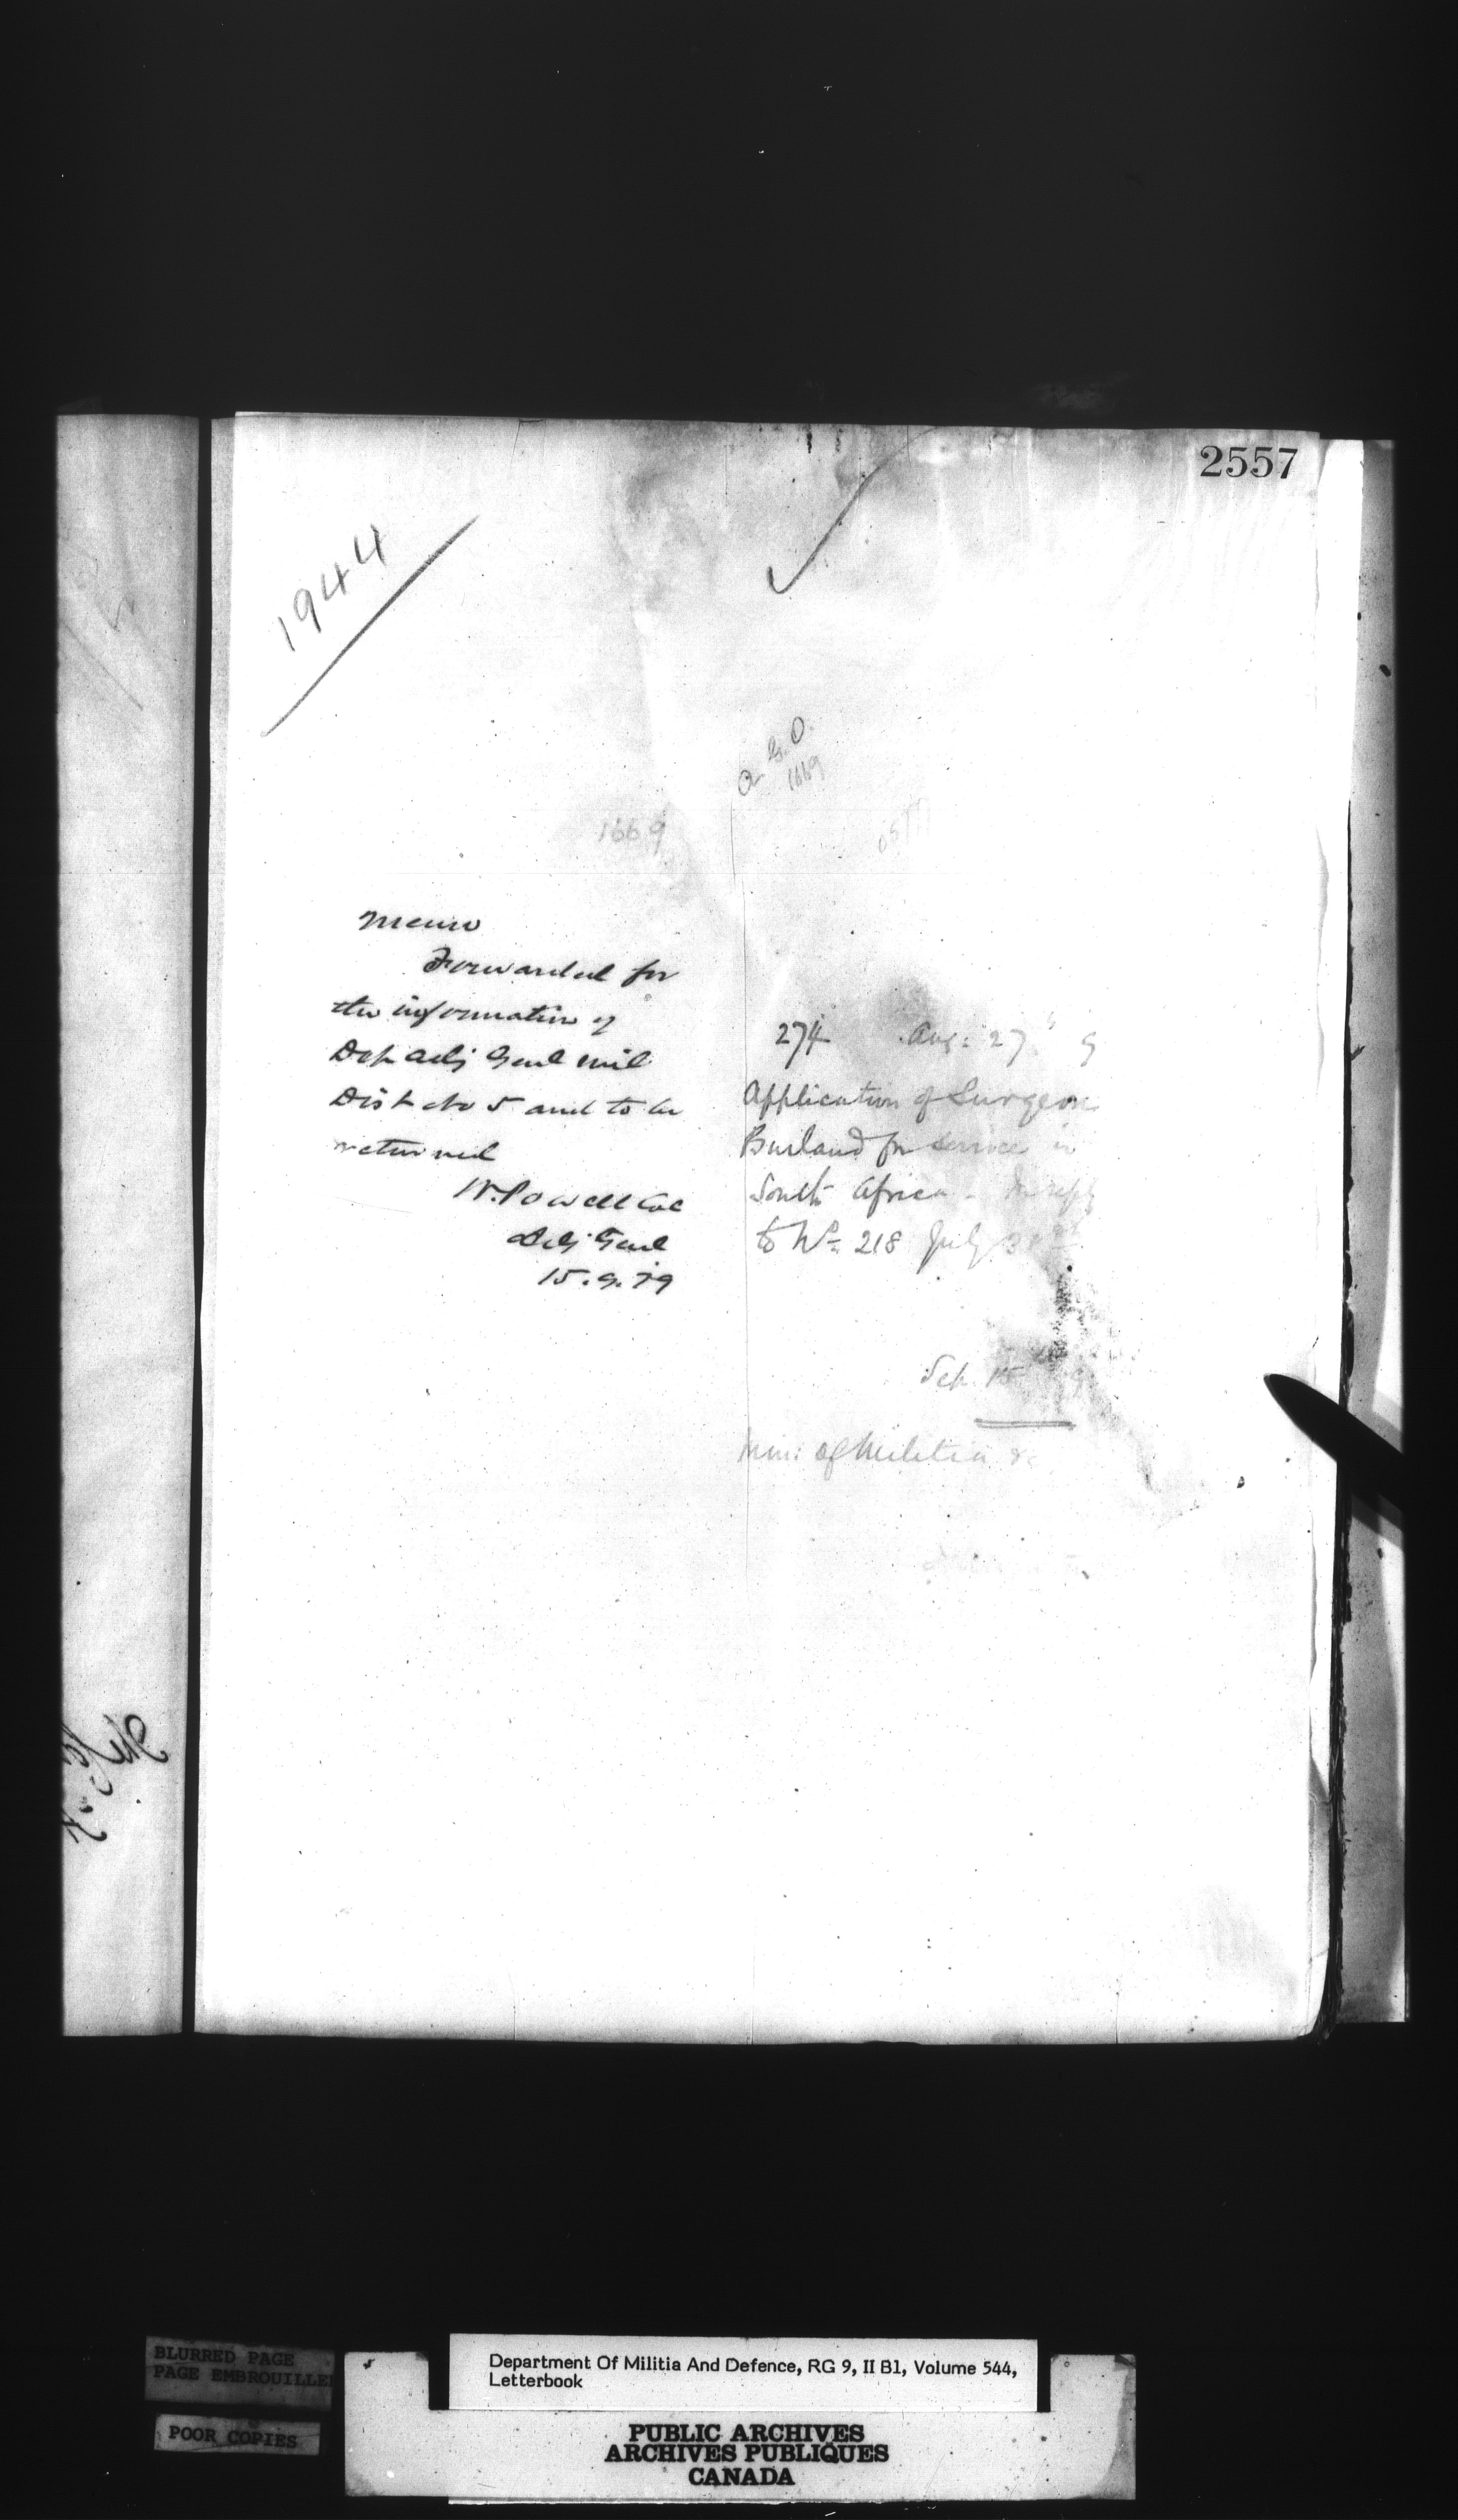 2557
1944
A.G.O.
1669
1669
Memo
Forwarded for
the information of
Dep Adj Genl Mil
Dist No 5 and to be
returned
W. Powell Col
Adj Genl
15.9.79
274 Aug: 27th 9
Application of Surgeon
Burland for service in
South Africa - In reply
to No 218 July
Sep 15
Min: of Militia &c
BLURRED PAGE
PAGE EMBROUILLEE
POOR COPIES
Department Of Militia And Defence, RG 9, II B1, Volume 544,
Letterbook
PUBLIC ARCHIVES
ARCHIVES PUBLIQUES
CANADA